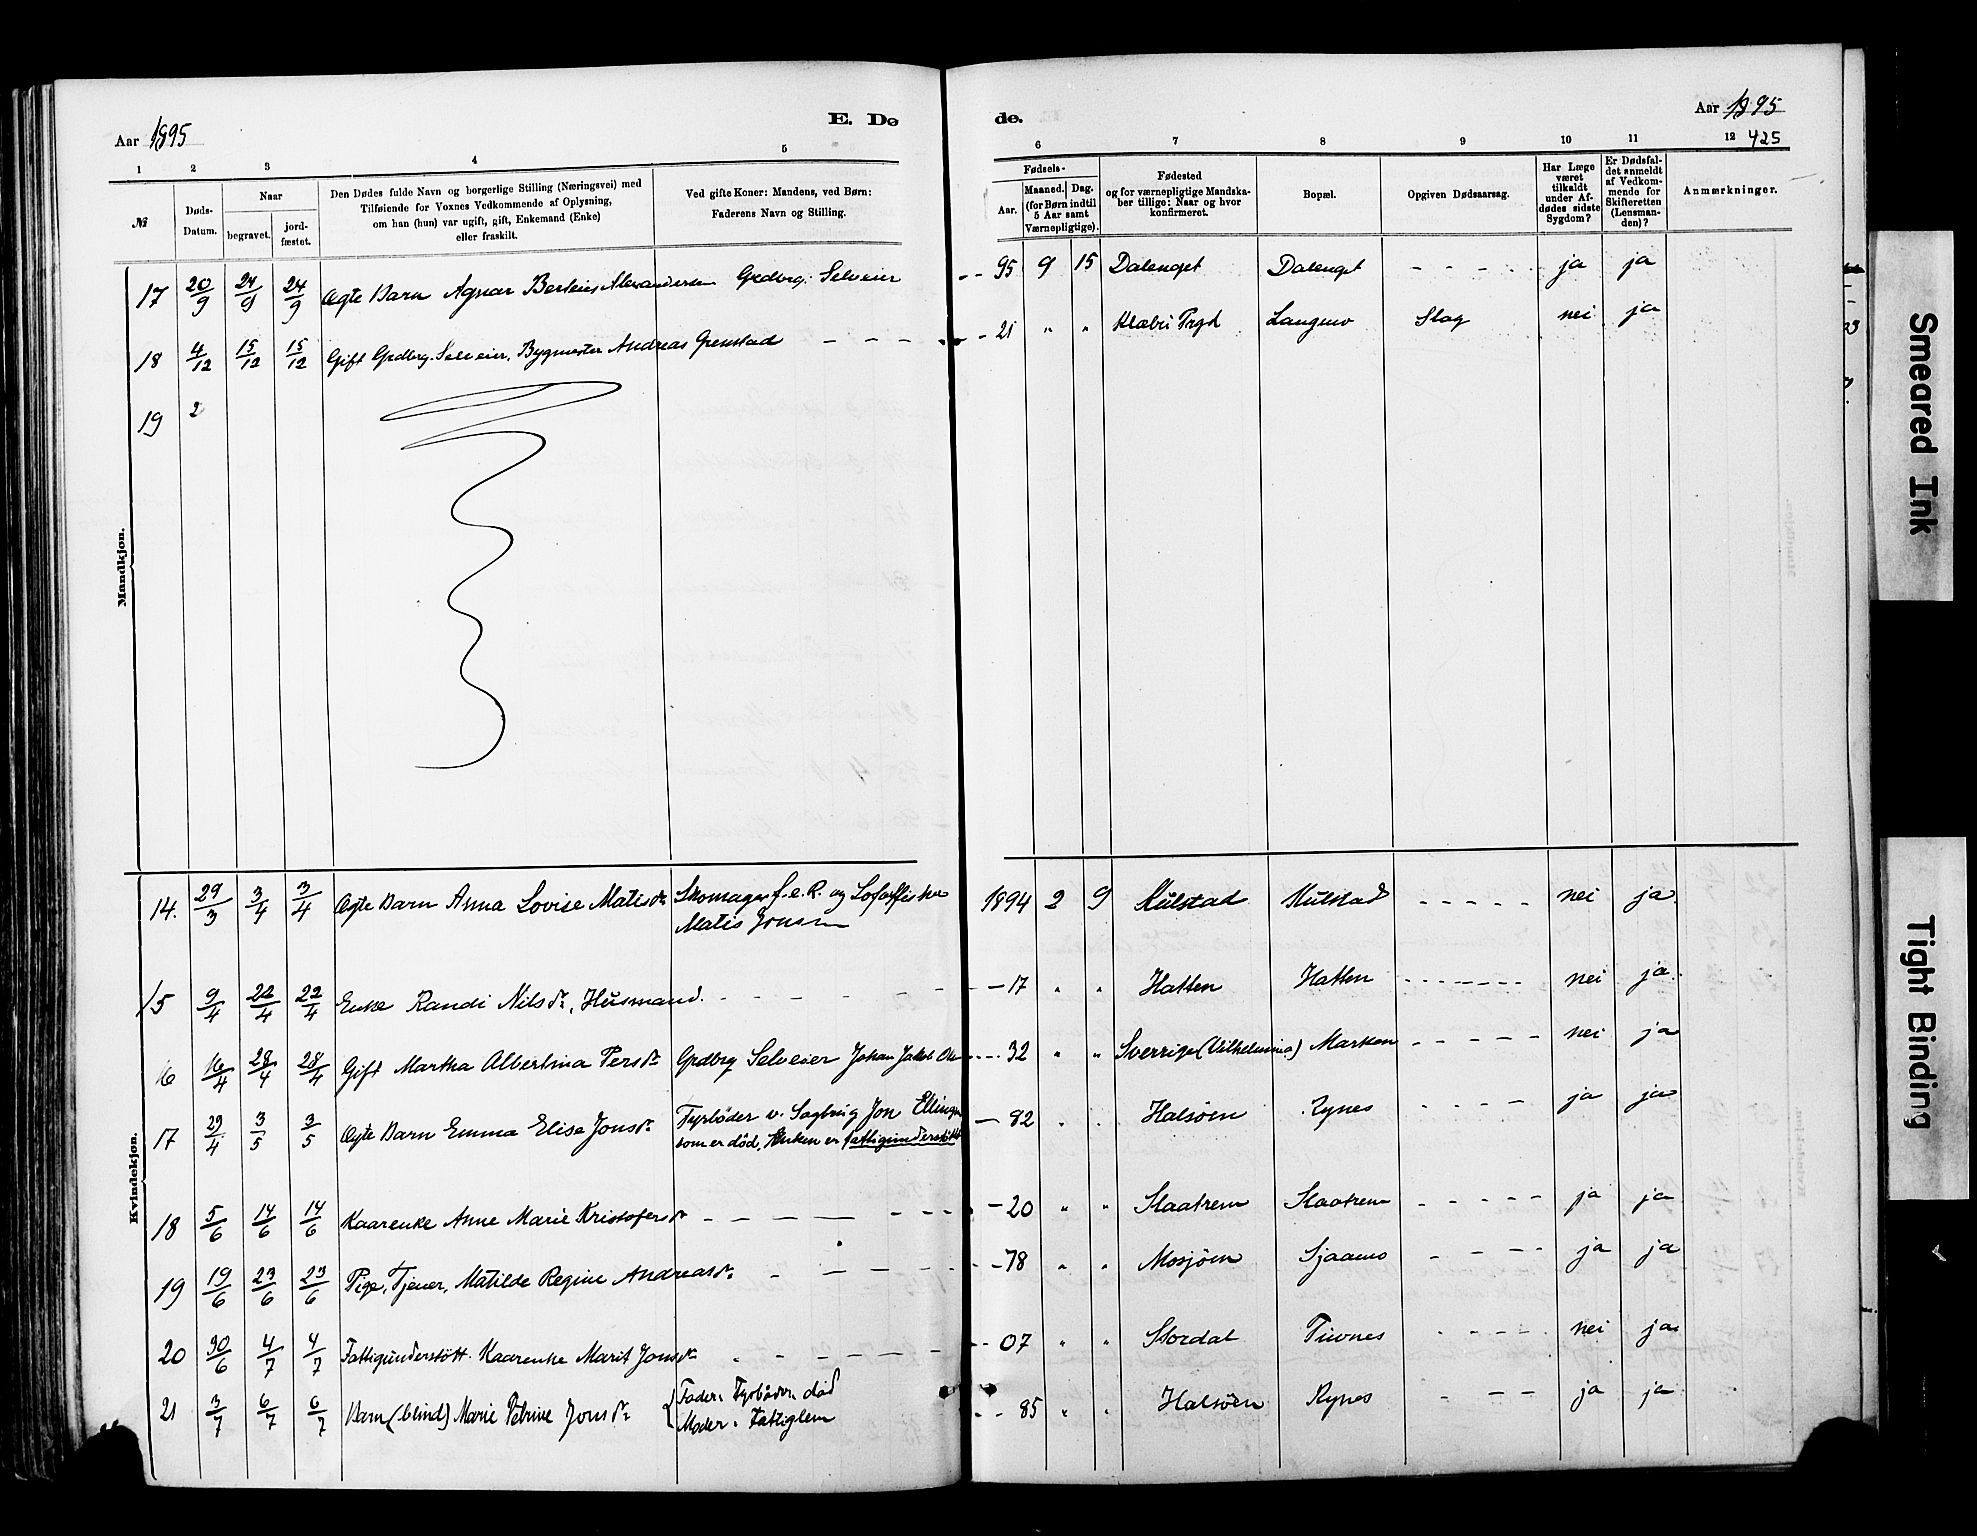 Aar 1895
E. Dø
de.
Aar 1895
425
1 2 3 4 5 6 7 8 9 10 11 12
№
Døds-Datum.
Naar
begravet.
jord-fæstet.
Den Dødes fulde Navn og borgerlige Stilling (Næringsvei) med
Tilføiende for Voxnes Vedkommende af Oplysning,
om han (hun) var ugift, gift, Enkemand (Enke)
eller fraskilt.
Ved gifte Koner: Mandens, ved Børn:
Faderens Navn og Stilling.
Fødsels-
Aar.
Maaned. Dag.
(for Børn indtil
5 Aar samt
Værnepligtige).
Fødested
og for værnepligtige Mandska-
ber tillige: Naar og hvor
konfirmeret.
Bopæl.
Opgiven Dødsaarsag.
Har Læge
været
tilkaldt
under Af-
dødes sidste
Sygdom?
Er Dødsfal-
det anmeldt
af Vedkom-
mende for
Skifteretten
(Lensman-
den)?
Anmærkninger.
Mandkjøn.
17 20/9 24/9 24/9 Ægte Barn Agnar Berteus Alexandersen Grdbrg. Selveier - - 95 9 15 Dalenget Dalenget - - - - - ja ja
18 4/12 15/12 15/12 Gift Grdbrg. Selveier, Bygmester Andreas Grenstad - - - - - 21 " " Klæbu Prgd Langmo Slag nei ja
19 2
Kvindekjøn.
14. 29/3 3/4 3/4 Ægte Barn Anna Lovise Matisdr. Skomager f.e.R. og Lofotfisker 1894 2 9 Kulstad Kulstad - - - - - nei ja
Matis Jonsen
15 9/4 22/4 22/4 Enke Randi Nilsdr., Husmand. - - - - - 17 " " Hatten Hatten - - - - - nei ja
16 16/4 28/4 28/4 Gift Martha Albertina Persdr. Grdbrg Selveier Johan Jakob - - - 32 " " Sverrige (Vilhelmina) Marken - - - - - nei ja
17 29/4 3/5 3/5 Ægte Barn Emma Elise Jonsdr. Fyrbøder v. Sagbrug Jon Ellingsen - 82 " " Halsøen Rynes - - - - ja ja
som er død, Enken er fattigunderstøtt
18 5/6 14/6 14/6 Kaarenke Anne Marie Kristofersdr. - - - - - 20 " " Slaatrem Slaatrem - - - - - ja ja
19 19/6 23/6 23/6 Pige, Tjener, Matilde Regine Andreasdr. - - - - - 78 " " Mosjøen Sjaamo - - - - ja ja
20 30/6 4/7 4/7 Fattigunderstøtt. Kaarenke Marit Jonsdr. - - - - - 07 " " Stordal Tuvnes - - - - nei ja
21 3/7 6/7 6/7 Barn (blind) Marie Petrine Jonsdr. { Fader: Fyrbøder, død - - 85 " " Halsøen Rynes - - - ja ja
Moder: Fattiglem
Smeared Ink
Tight Binding